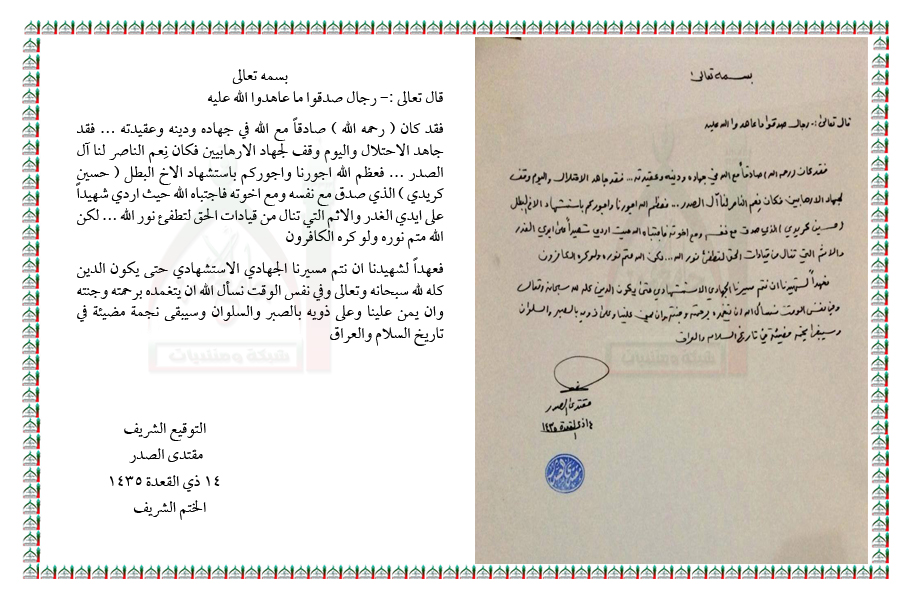 بسمه تعالى
قال تعالى :– رجال صدقوا ما عاهدوا الله عليه
فقد كان ( رحمه الله ) صادقاً مع الله في جهاده ودينه وعقيدته ... فقد
جاهد الاحتلال واليوم وقف لجهاد الارهابيين فكان نِعم الناصر لنا آل
الصدر ... فعظم الله اجورنا واجوركم باستشهاد الاخ البطل ( حسين
كريدي ) الذي صدق مع نفسه ومع اخوته فاجتباه الله حيث اردي شهيداً
على ايدي الغدر والاثم التي تنال من قيادات الحق لتطفئ نور الله ... لكن
الله متم نوره ولو كره الكافرون
فعهداً لشهيدنا ان نتم مسيرنا الجهادي الاستشهادي حتى يكون الدين
كله لله سبحانه وتعالى وفي نفس الوقت نسأل الله ان يتغمده برحمته وجنته
وان يمن علينا وعلى ذويه بالصبر والسلوان وسيبقى نجمة مضيئة في
تاريخ السلام والعراق
التوقيع الشريف
مقتدى الصدر
١٤ ذي القعدة ١٤٣٥
الختم الشريف
بسمه تعالى
قال تعالى :- رجال صدقوا ما عاهدوا الله عليه
فقد كان (رحمه الله) صادقاً مع الله في جهاده ودينه وعقيدته ... فقد جاهد الاحتلال واليوم وقف
لجهاد الارهابيين فكان نِعم الناصر لنا آل الصدر ... فعظم الله اجورنا واجوركم باستشهاد الاخ البطل
(حسين كريدي) الذي صدق مع نفسه ومع اخوته فاجتباه الله حيث اردي شهيداً على ايدي الغدر
والاثم التي تنال من قيادات الحق لتطفئ نور الله ... لكن الله متم نوره ولو كره الكافرون
فعهداً لشهيدنا ان نتم مسيرنا الجهادي الاستشهادي حتى يكون الدين كله لله سبحانه وتعالى
وفي نفس الوقت نسأل الله ان يتغمده برحمته وجنته وان يمن علينا وعلى ذويه بالصبر والسلوان
وسيبقى نجمة مضيئة في تاريخ السلام والعراق
مقتدى الصدر
١٤ ذي القعدة ١٤٣٥
شبكة ومنتديات
شبكة ومنتديات